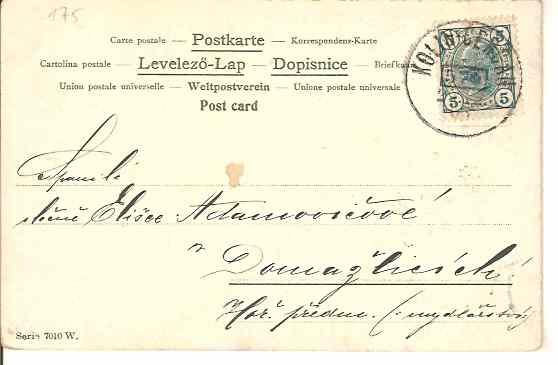 175
Carte postale — Postkarte — Korrespondenz-Karte
Cartolina postale — Levelező-Lap — Dopisnice — Briefkaart
Union postale universelle — Weltpostverein — Unione postale universale
Post card
5 5
5 5
KOLIN
Spanilé
slečně Elišce Adamovičové
v
Domažlicích
Hoř. předm. (: mydlářství :)
Serie 7010 W.